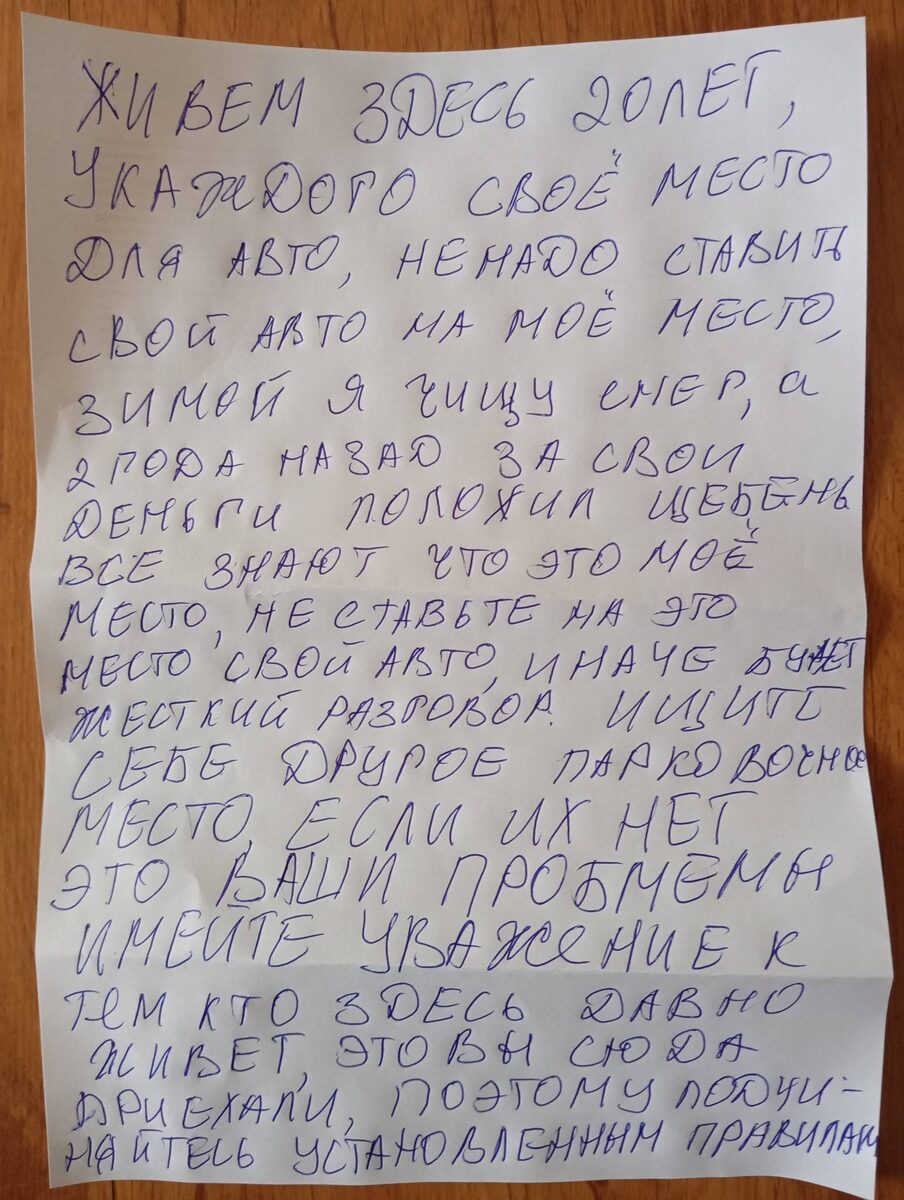 ЖИВЕМ ЗДЕСЬ 20 ЛЕТ,
У КАЖДОГО СВОЁ МЕСТО
ДЛЯ АВТО, НЕ НАДО СТАВИТЬ
СВОЙ АВТО НА МОЁ МЕСТО,
ЗИМОЙ Я ЧИЩУ СНЕГ, а
2 ГОДА НАЗАД ЗА СВОИ
ДЕНЬГИ ПОЛОЖИЛ ЩЕБЕНЬ
ВСЕ ЗНАЮТ ЧТО ЭТО МОЁ
МЕСТО, НЕ СТАВЬТЕ НА ЭТО
МЕСТО СВОЙ АВТО, ИНАЧЕ БУДЕТ
ЖЕСТКИЙ РАЗГОВОР. ИЩИТЕ
СЕБЕ ДРУГОЕ ПАРКОВОЧНОЕ
МЕСТО, ЕСЛИ ИХ НЕТ
ЭТО ВАШИ ПРОБМЕМЫ
ИМЕЙТЕ УВАЖЕНИЕ К
ТЕМ КТО ЗДЕСЬ ДАВНО
ЖИВЕТ, ЭТО ВЫ СЮДА
ПРИЕХАЛИ, ПОЭТОМУ ПОДЧИ-
НАЙТЕСЬ УСТАНОВЛЕННЫМ ПРАВИЛАМ